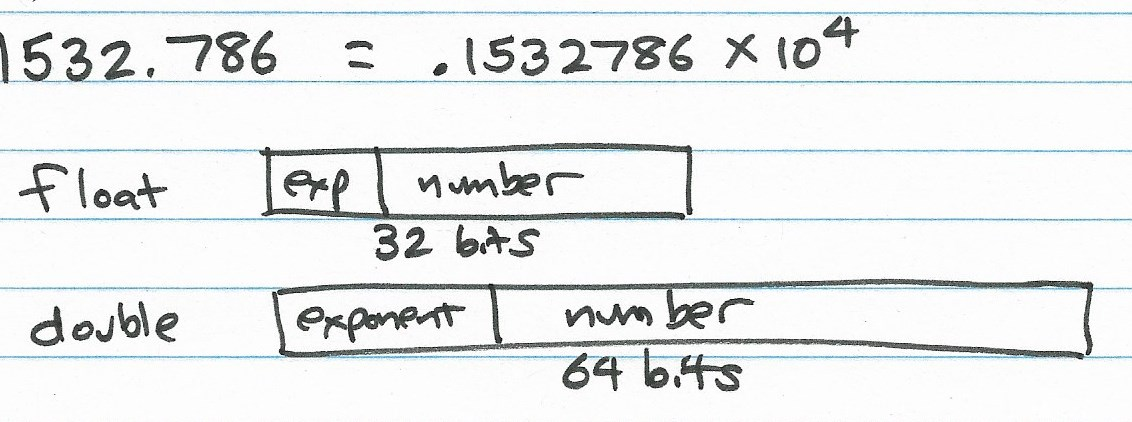 1532.786 = .1532786 × 10⁴
float exp number
32 bits
double exponent number
64 bits